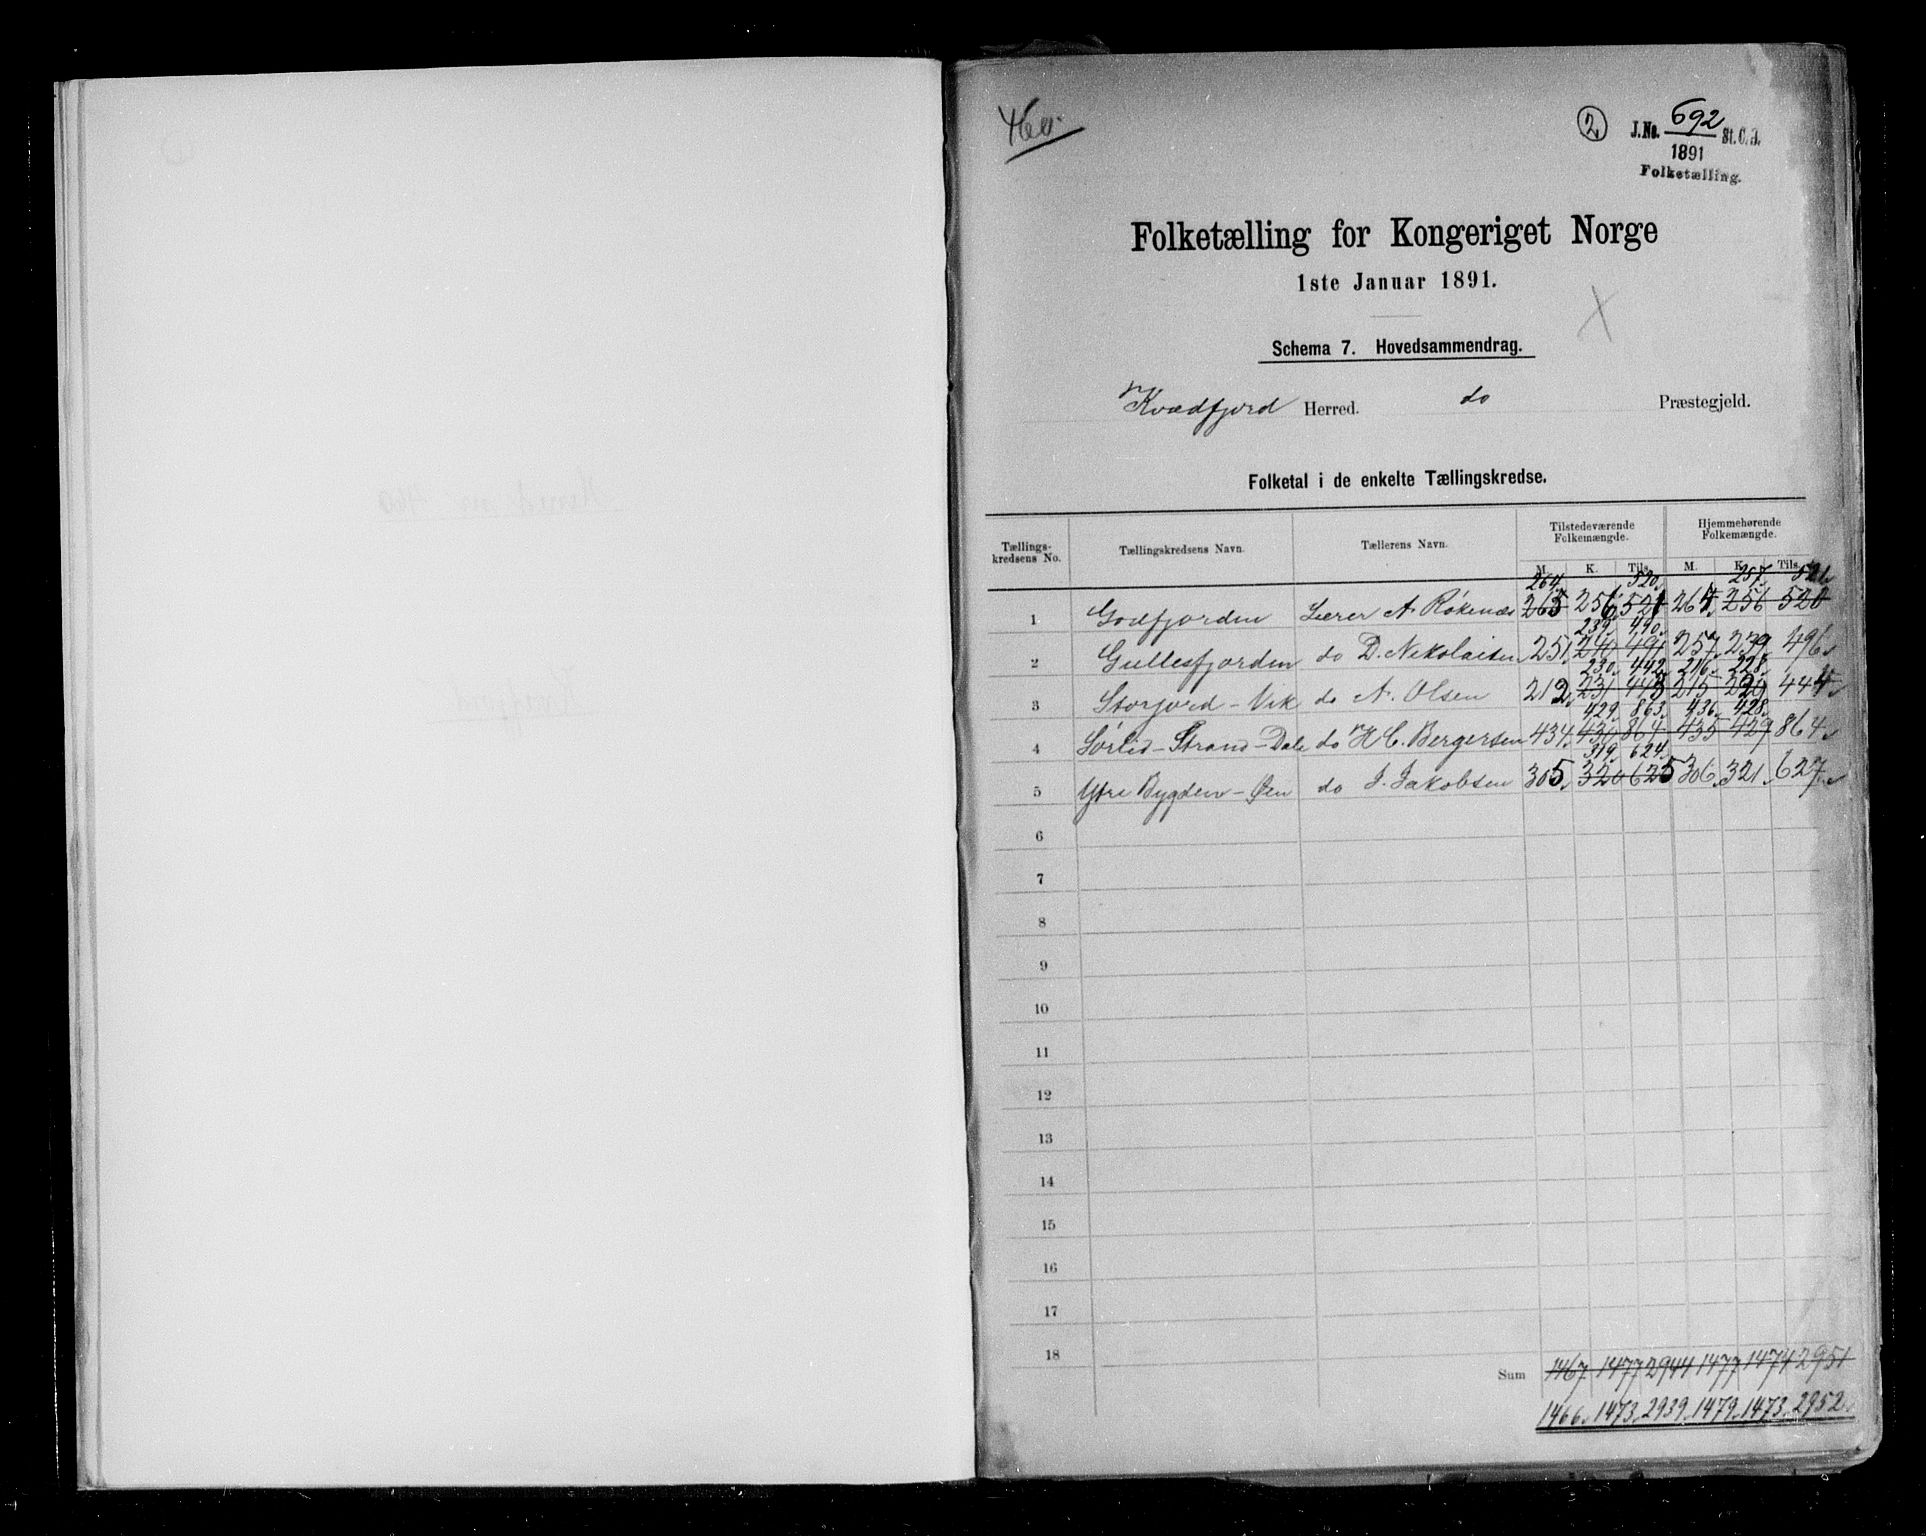 460.
2
J.No. 692 St.C.B.
1891
Folketælling.
Folketælling for Kongeriget Norge
1ste Januar 1891.
Schema 7. Hovedsammendrag.
Kvædfjord Herred. do Præstegjeld.
Folketal i de enkelte Tællingskredse.
Tællings-kredsens No. Tællingskredsens Navn. Tællerens Navn. Tilstedeværende Folkemængde. Hjemmehørende Folkemængde.
M. K. Tils. M. K. Tils.
264. 520. 257. 521.
1 Godfjorden Lærer A. Røkenæs 265 256 521 264 256 520
239. 490.
2 Gullesfjorden do D. Nikolaisen 251. 240 491 257. 239. 496.
230. 442. 216. 228.
3 Storjord-Vik do A. Olsen 212. 231 443 215 229 444.
429. 863. 436. 428.
4 Sørlid-Strand-Dale do H C. Bergersen 434. 430 864 435 429 864.
319. 624.
5 Ytre Bygden-Øen do J. Jakobsen 305. 320 625 306. 321. 627.
6
7
8
9
10
11
12
13
14
15
16
17
18
Sum 1467 1477 2944 1477 1474 2951
1466. 1473. 2939. 1479. 1473. 2952.